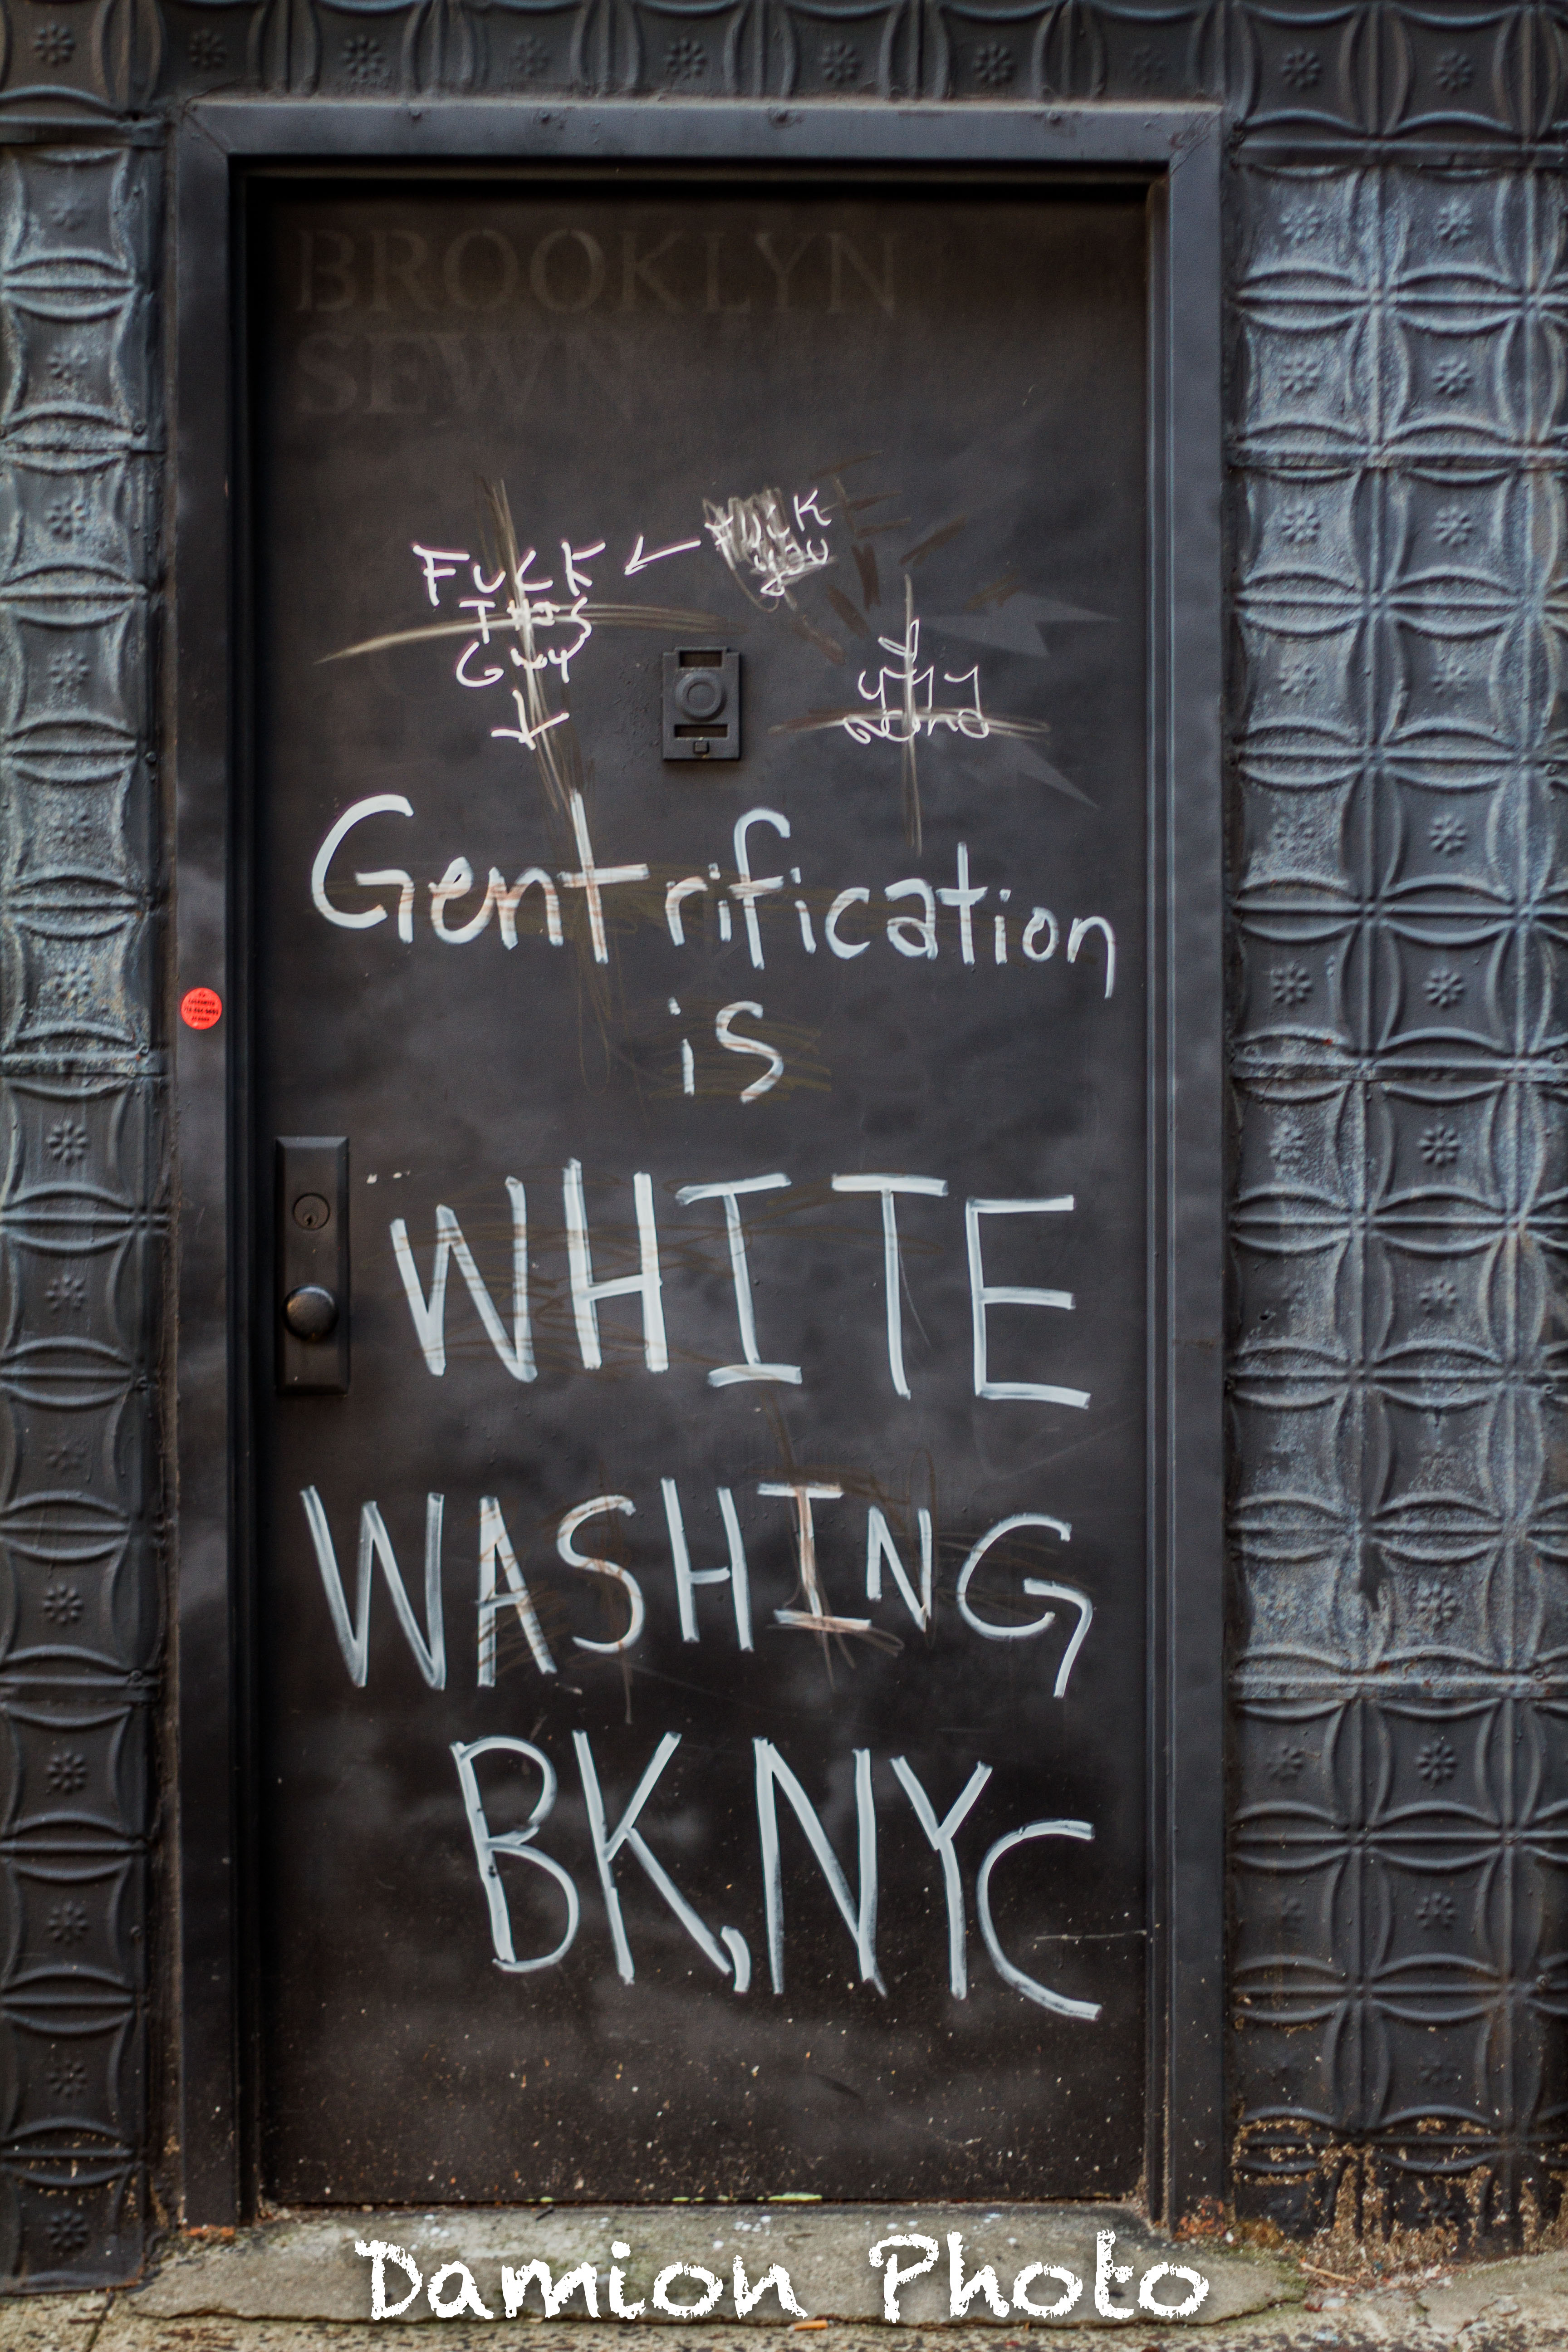 BROOKLYN
SEWN
FUCK
THIS
GUY
FUCK
you
Gentrification
is
WHITE
WASHING
BK, NYC
Damion Photo